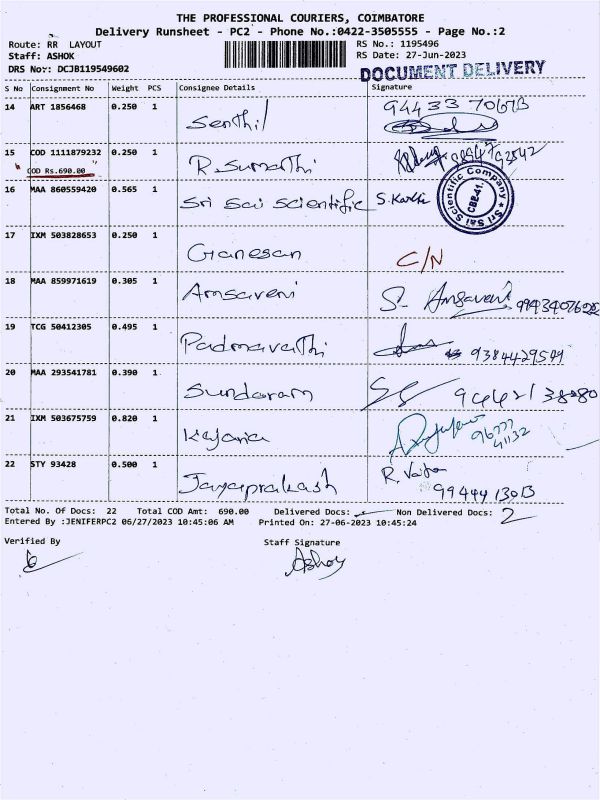 THE PROFESSIONAL COURIERS, COIMBATORE
Delivery Runsheet - PC2 - Phone No.:0422-3505555 - Page No.:2
Route: RR LAYOUT
RS No.: 1195496
Staff: ASHOK
RS Date: 27-Jun-2023
DRS No: DCJB119549602
DOCUMENT DELIVERY
S No Consignment No Weight PCS Consignee Details Signature
14 ART 1856468 0.250 1 Senthil 94433
15 COD 1111879232 0.250 1 R. Sumathi
COD Rs.690.00
16 MAA 860559420 0.565 1 Sri Sai Scientific S. Karthi
Sri Sai Scientific Company CBE-41.
17 IXM 503828653 0.250 1 Ganesan C/N
18 MAA 859971619 0.305 1 Amsaveni S. Amsaveni
19 TCG 50412305 0.495 1 Padmavathi 9384429549
20 MAA 293541781 0.390 1 Sundaram
21 IXM 503675759 0.820 1 Kajaria 96777 41132
22 STY 93428 0.500 1 Jayaprakash R.
9944413013
Total No. Of Docs: 22 Total COD Amt: 690.00 Delivered Docs: Non Delivered Docs: 2
Entered By :JENIFERPC2 06/27/2023 10:45:06 AM Printed On: 27-06-2023 10:45:24
Verified By Staff Signature
Ashok